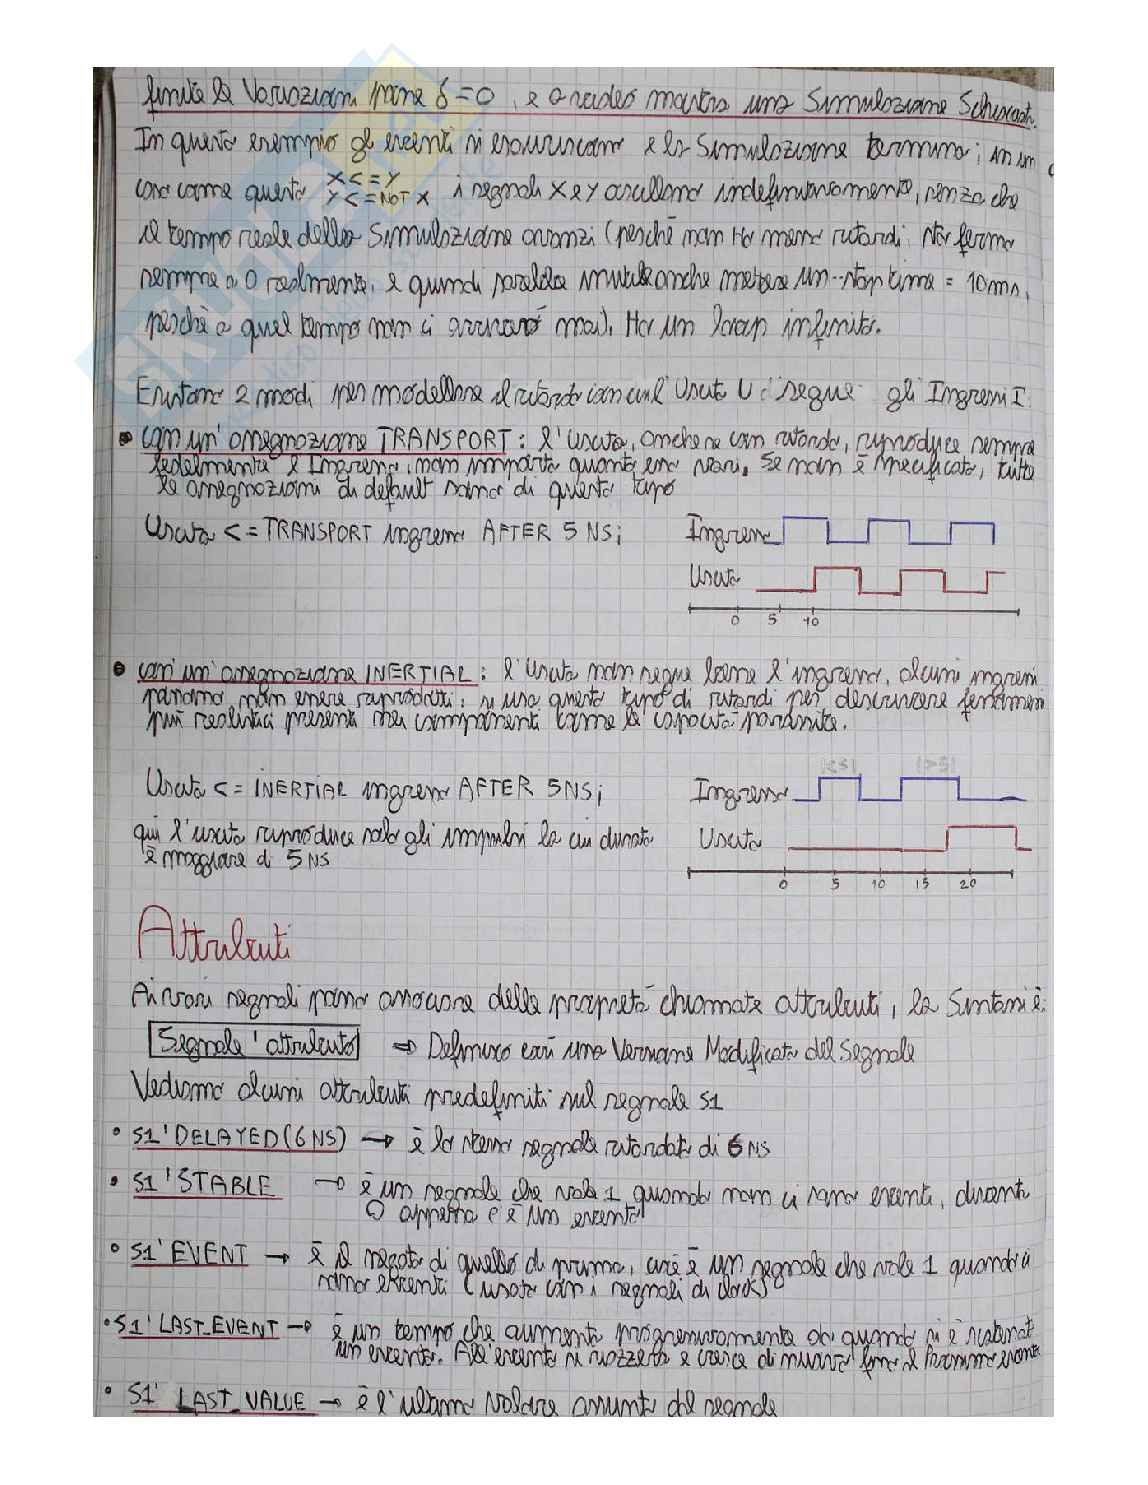 finite le variazioni pone δ=0, e a video mostra una Simulazione
In questo esempio gli eventi si esauriscono e la Simulazione termina; in un
caso come questo X<=Y i segnali X e Y oscillano indefinitivamente, senza che
Y<=NOT X
il tempo reale della Simulazione avanzi (perché non Ho messo ritardi. Sta fermo
sempre a 0 realmente, e quindi sarebbe inutile anche mettere un stop time = 10ns,
perché a quel tempo non ci arriverò mai). Ho un loop infinito.
Esistono 2 modi per modellare il ritardo con cui l'Uscita U segue gli Ingressi I.
• con un'assegnazione TRANSPORT: l'uscita, anche se con ritardo, riproduce sempre
fedelmente l'Ingresso, non importa quanto esso vari. Se non è specificato, tutte
le assegnazioni di default sono di questo tipo
Uscita <= TRANSPORT ingresso AFTER 5 NS;
Ingresso
Uscita
0 5 10
• con un'assegnazione INERTIAL: l'uscita non segue bene l'ingresso, alcuni ingressi
possono non essere riprodotti; si usa questo tipo di ritardi per descrivere fenomeni
più realistici presenti nei componenti come le capacità parassite.
|<5| |>5|
Uscita <= INERTIAL ingresso AFTER 5NS;
Ingresso
qui l'uscita riproduce solo gli impulsi la cui durata
è maggiore di 5 NS
Uscita
0 5 10 15 20
Attributi
Ai vari segnali posso associare delle proprietà chiamate attributi, la Sintassi è:
Segnale ' attributo => Definisco così una Versione Modificata del Segnale
Vediamo alcuni attributi predefiniti sul segnale S1
• S1'DELAYED(6 NS) → è lo stesso segnale ritardato di 6 NS
• S1'STABLE → è un segnale che vale 1 quando non ci sono eventi, diventa
0 appena c'è un evento
• S1'EVENT → è il negato di quello di prima, cioè è un segnale che vale 1 quando ci
sono eventi (usato con i segnali di clock)
• S1'LAST_EVENT → è un tempo che aumenta progressivamente da quando si è scatenato
un evento. All'evento si azzera e cresce di nuovo fino al prossimo evento
• S1'LAST_VALUE → è l'ultimo valore assunto dal segnale